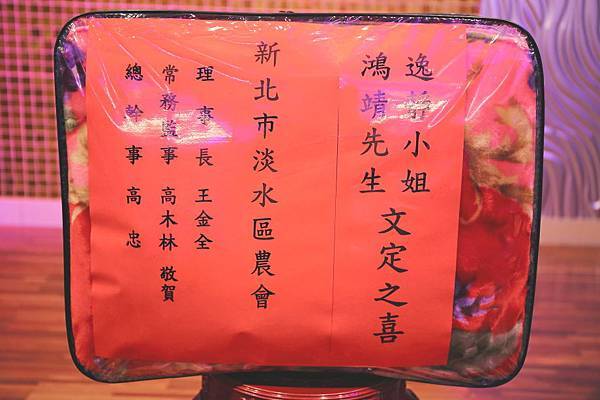 逸 小姐
鴻靖先生
文定之喜
新北市淡水區農會
理事長 王金全
常務監事 高木林 敬賀
總幹事 高忠